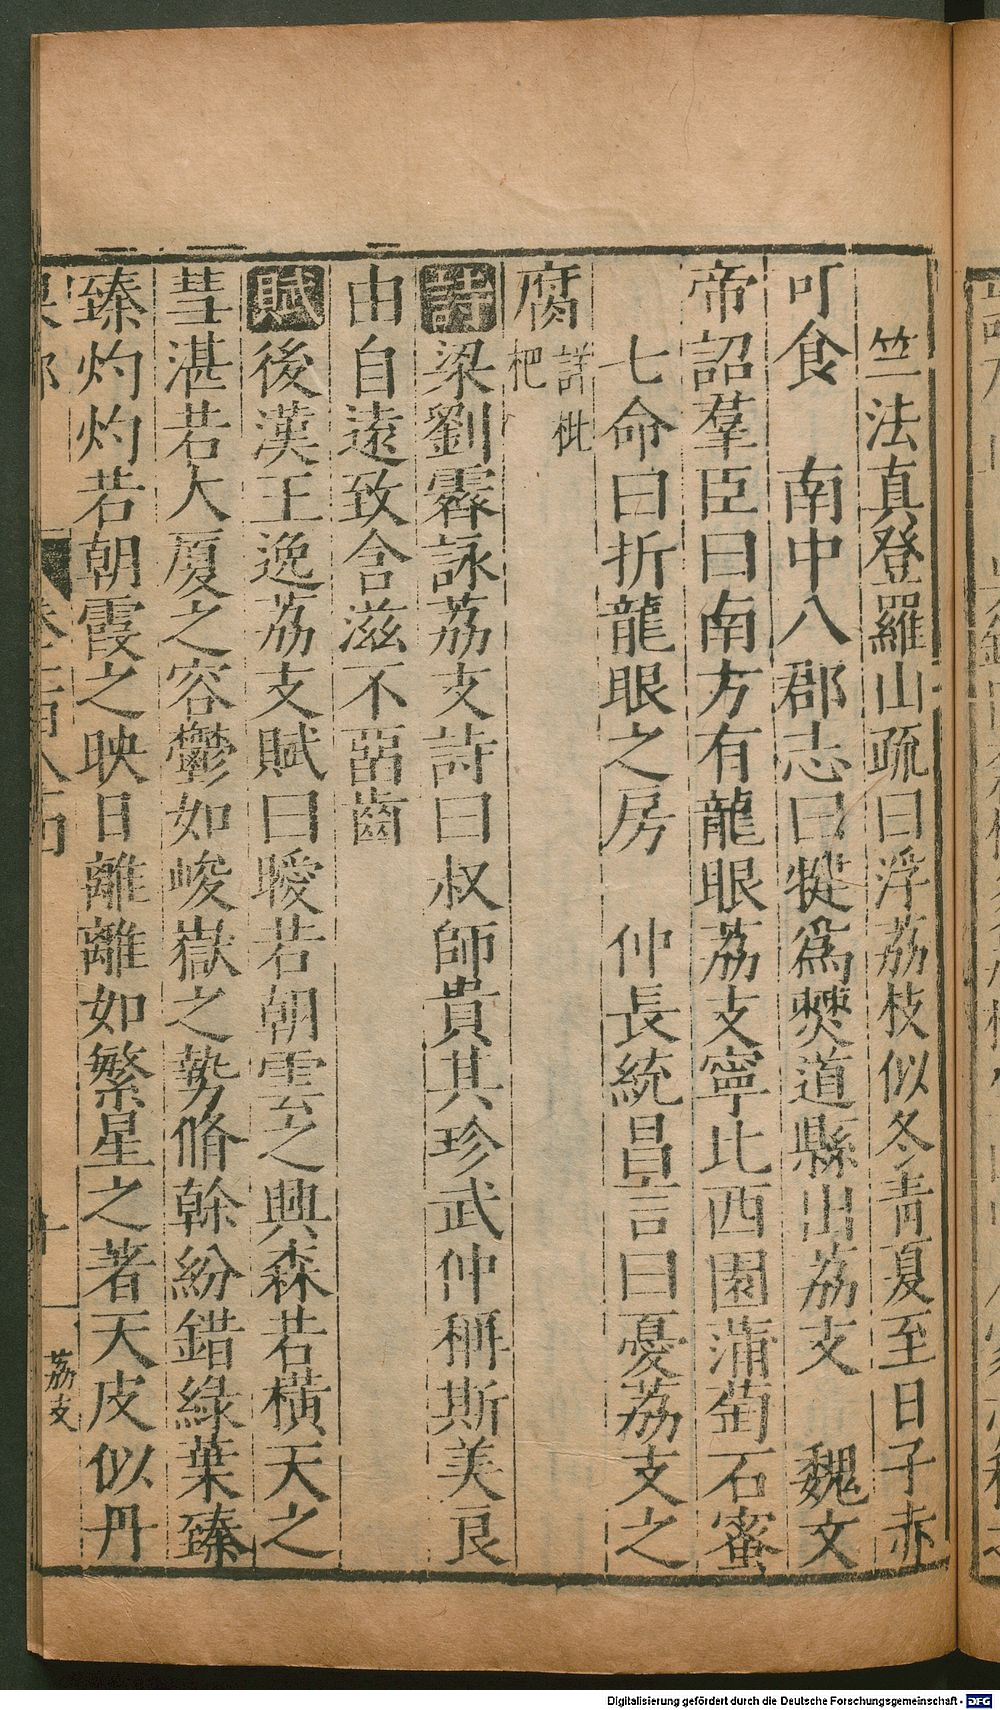 竺法真登羅山疏曰浮荔枝似冬青夏至日子赤
叮食　南中八郡志曰犍爲僰道縣出荔支　魏文
帝詔羣臣曰南方有龍眼荔支寧比西園蒲萄石蜜
七命曰折龍眼之房　仲長統昌言曰憂荔支之
腐
詳枇
杷
詩梁劉霽詠荔支詩曰叔師貴其珍武仲稱斯美良
由自遠致含滋不𠴨齒
賦後漢王逸荔支賦曰曖若朝雲之興森若橫天之
彗湛若大厦之容鬱如峻嶽之勢脩幹紛錯綠葉臻
臻灼灼若朝霞之映日離離如繁星之著天皮似丹
荔支
Digitalisierung gefördert durch die Deutsche Forschungsgemeinschaft - DFG